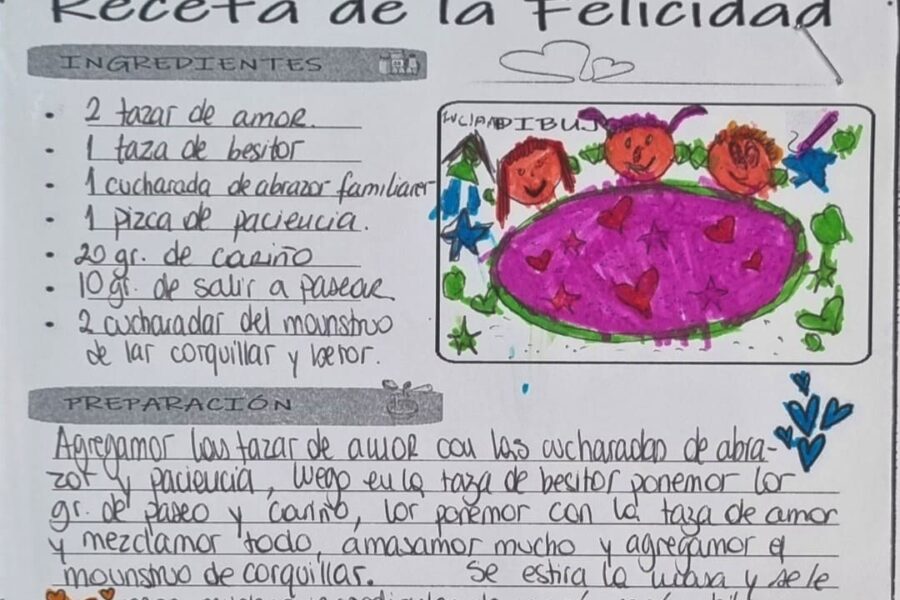 Receta de la Felicidad
INGREDIENTES
• 2 tazas de amor.
• 1 taza de besitos
• 1 cucharada de abrazos familiares
• 1 pizca de paciencia.
• 20 gr. de cariño
• 10 gr. de salir a pasear
• 2 cucharadas del mounstruo
de las cosquillas y besos.
DIBUJO
PREPARACIÓN
Agregamos las tazas de amor con las cucharadas de abra-
zos y paciencia, luego en la taza de besitos ponemos los
gr. de paseo y cariño, los ponemos con la taza de amor
y mezclamos todo, amasamos mucho y agregamos el
mounstruo de cosquillas. Se estira la masa y se le